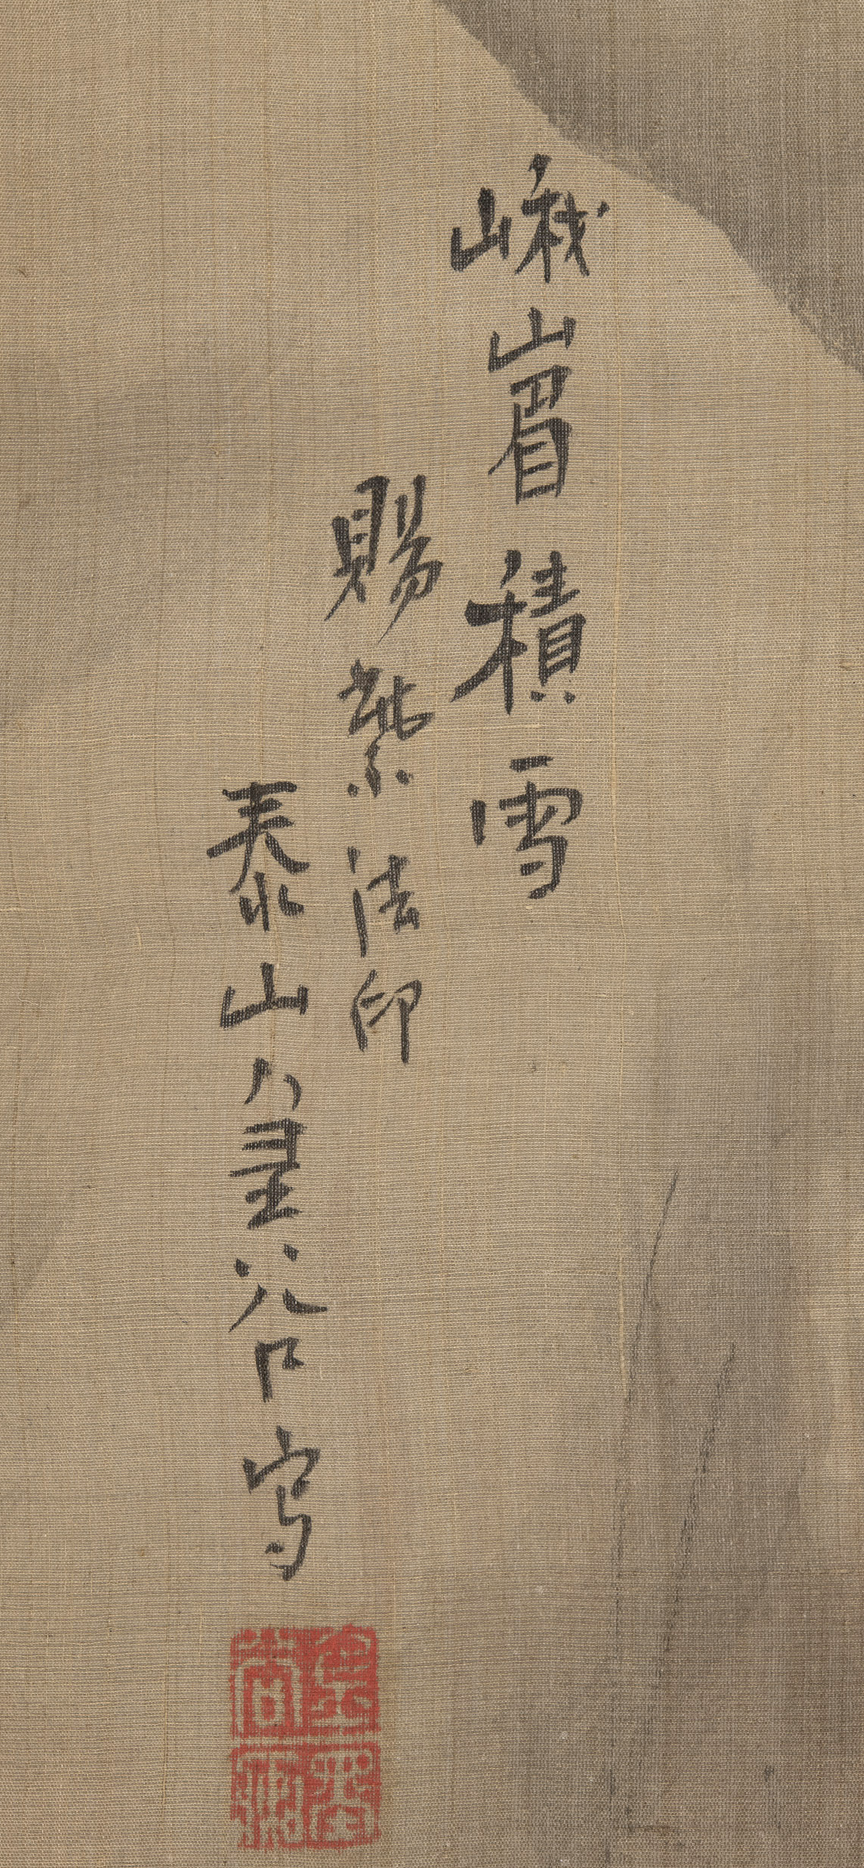 峨嵋積雪
賜紫法印
泰山金谷写